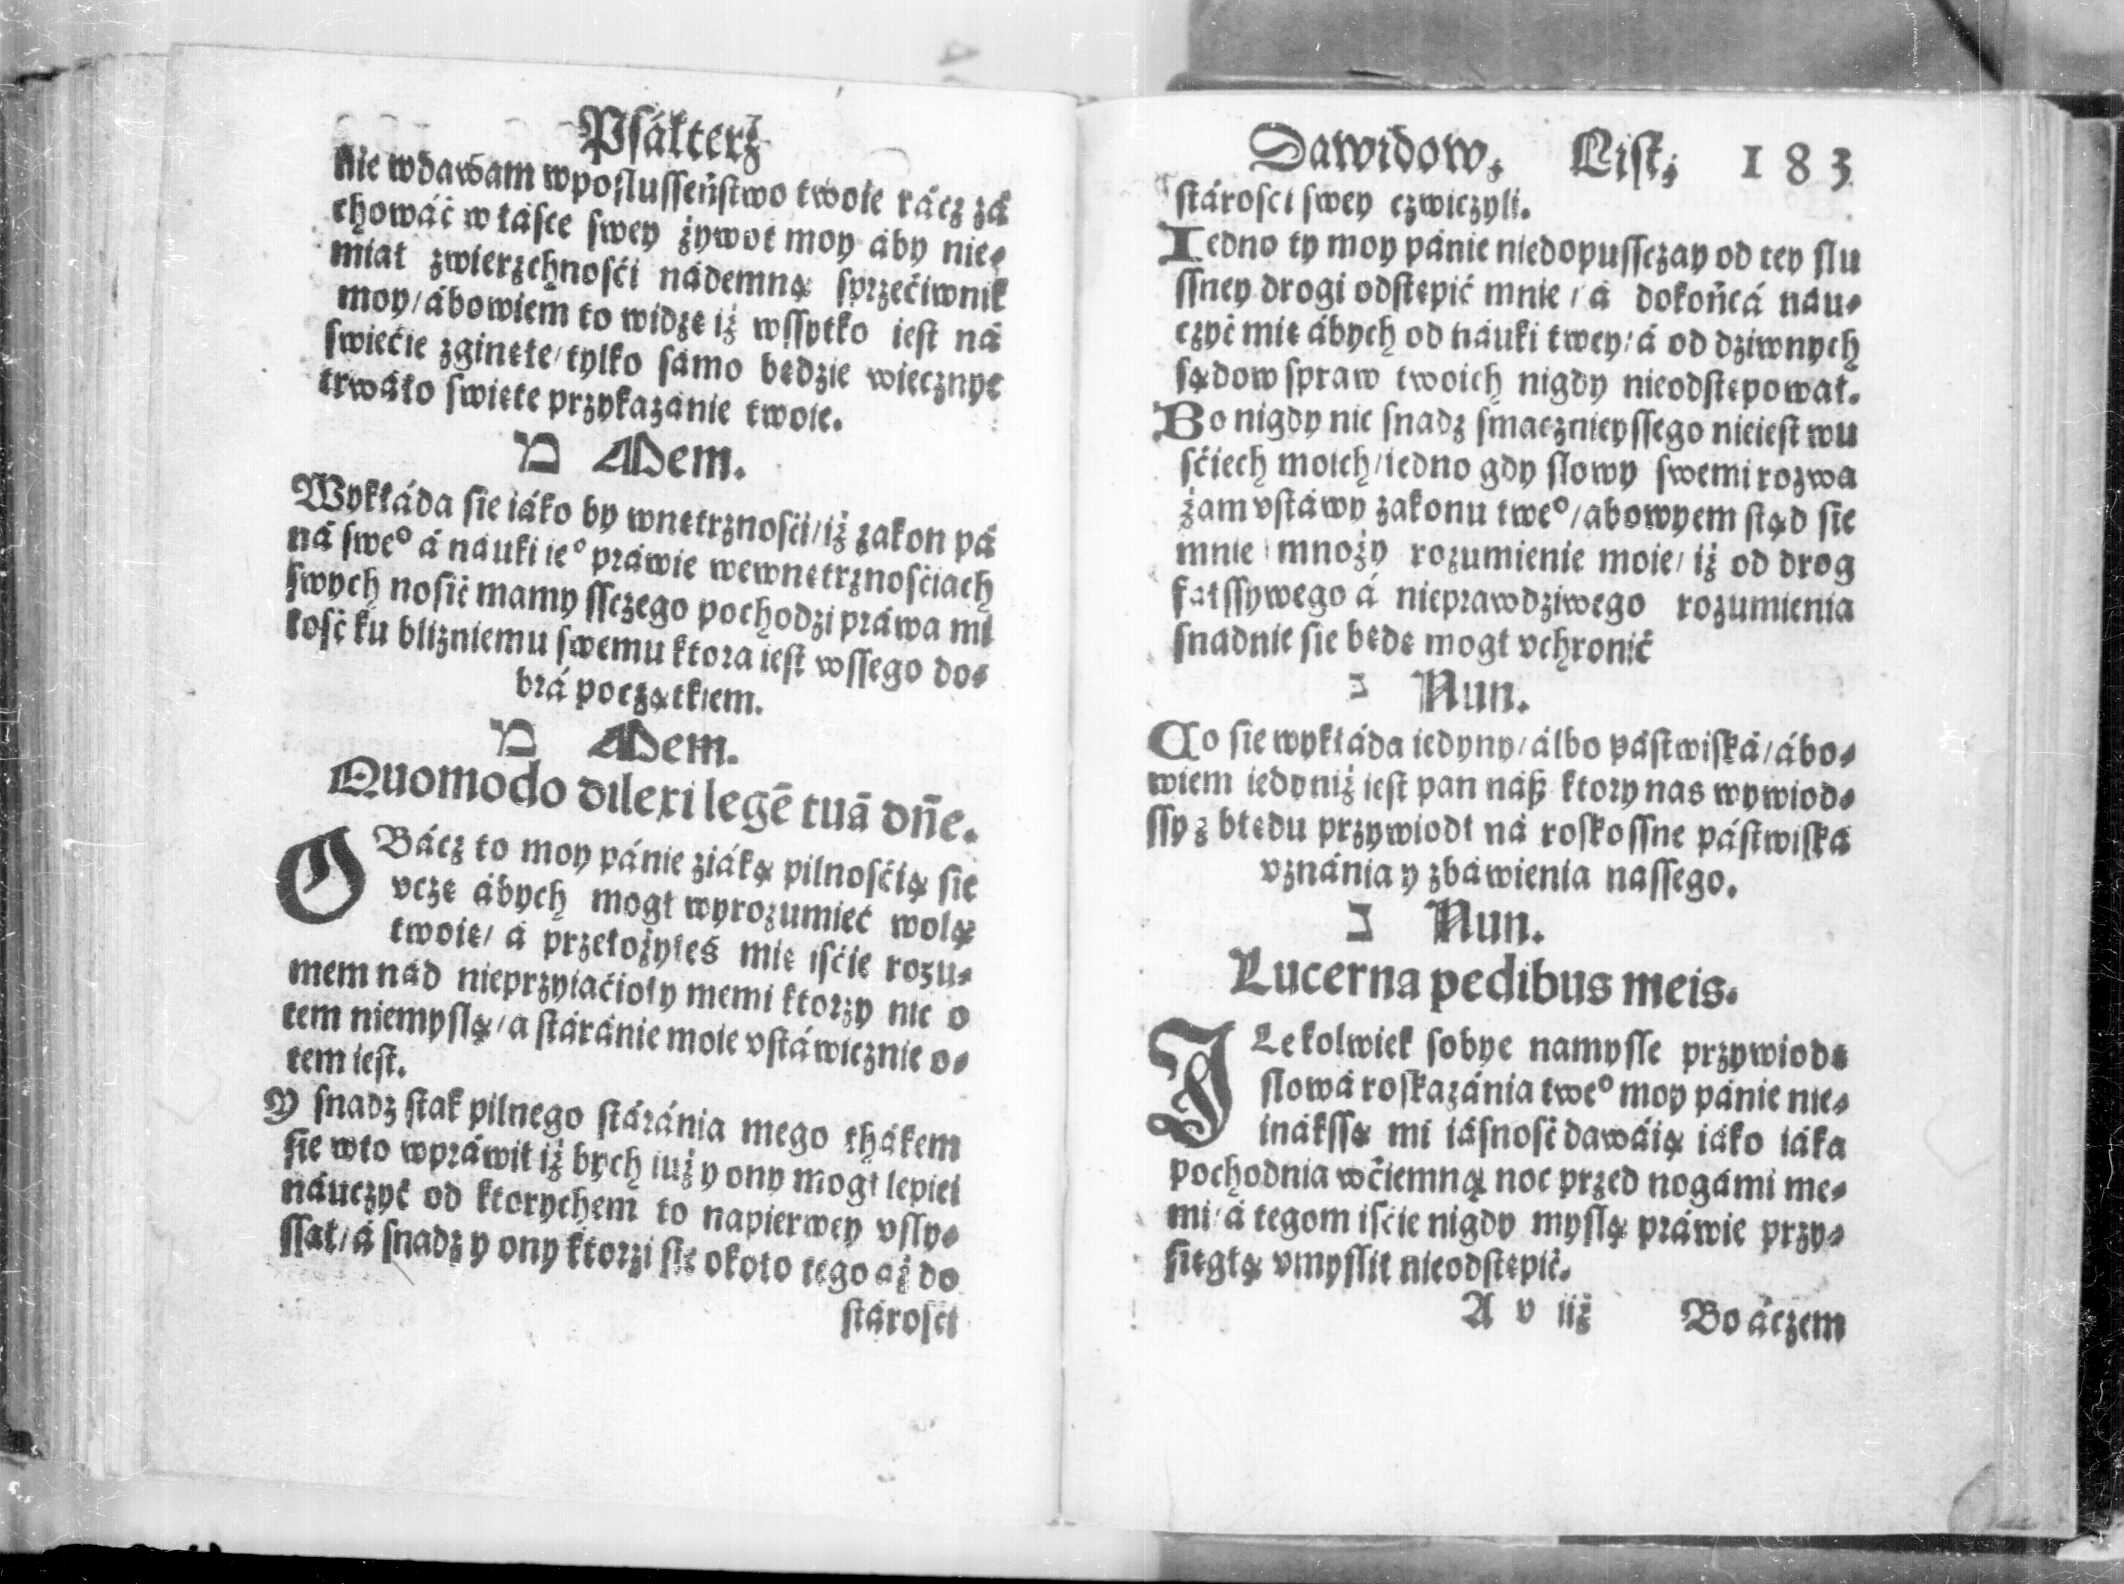 Psałterz
nie wdawam wposlusseństwo twoie rácz zá
chowáć w łásce swey żywot moy áby nie⸗
miał zwierzchnośći nádemną sprzećiwnik
moy/ ábowiem to widzę iż wssytko iest ná
swiećie zginęłe/ tylko sámo będzie wiecznye
trwáło swięte przykazánie twoie.
מ Mem.
Wykłáda sie iáko by wnętrznośći/ iż zakon pá
ná sweº á náuki ieº práwie wewnętrznośćiach
swych nośić mamy ssczego pochodzi práwa mi
łość ku bliźniemu swemu ktora iest wssego do⸗
brá początkiem.
מ Mem.
Quomodo dilexi legē tuā dn̄e.
OBácz to moy pánie ziáką pilnośćią sie
vczę ábych mogł wyrozumieć wolą
twoię/ á przełożyłeś mię iśćie rozu⸗
mem nád nieprzyiaćioły memi ktorzy nic o
tem niemyslą/ á stáránie moie vstáwicznie o⸗
tem iest.
Y snadz sták pilnego stáránia mego thákem
się wto wpráwił iż bych iuż y ony mogł lepiei
náuczyć od ktorychem to napierwey vsly⸗
ssał/ á snadz y ony ktorzi się około tego aż do
stárośći
Dawidow. List. 183
stárośći swey czwiczyli.
Iedno ty moy pánie niedopussczay od tey slu
ssney drogi odstępić mnie/ á dokońcá náu⸗
czyć mię ábych od náuki twey/ á od dziwnych
sądow spraw twoich nigdy nieodstępował.
Bo nigdy nic snadz smacznieyssego nieiest wu
śćiech moich/ iedno gdy slowy swemi rozwa
żam vstáwy zakonu tweº/ abowyem stąd sie
mnie mnoży rozumienie moie/ iż od drog
fałssywego á nieprawdziwego rozumienia
snadnie sie będę mogł vchronić
נ Nun.
Co sie wykłáda iedyny/ álbo pástwiská/ ábo⸗
wiem iedyniż iest pan náß ktory nas wywiod⸗
ssy z błędu przywiodł ná roskossne pástwiská
vznánia y zbáwienia nassego.
נ Nun.
Lucerna pedibus meis.
ILekolwiek sobye namysle przywiodę
slowá roskazánia tweº moy pánie nie⸗
ináksssą mi iásność dawáią iáko iáka
pochodnia wćiemną noc przed nogámi me⸗
mi/ á tegom iśćie nigdy myslą práwie przy⸗
sięgłą vmyslił nieodstępić.
A v iiż Bo áczem